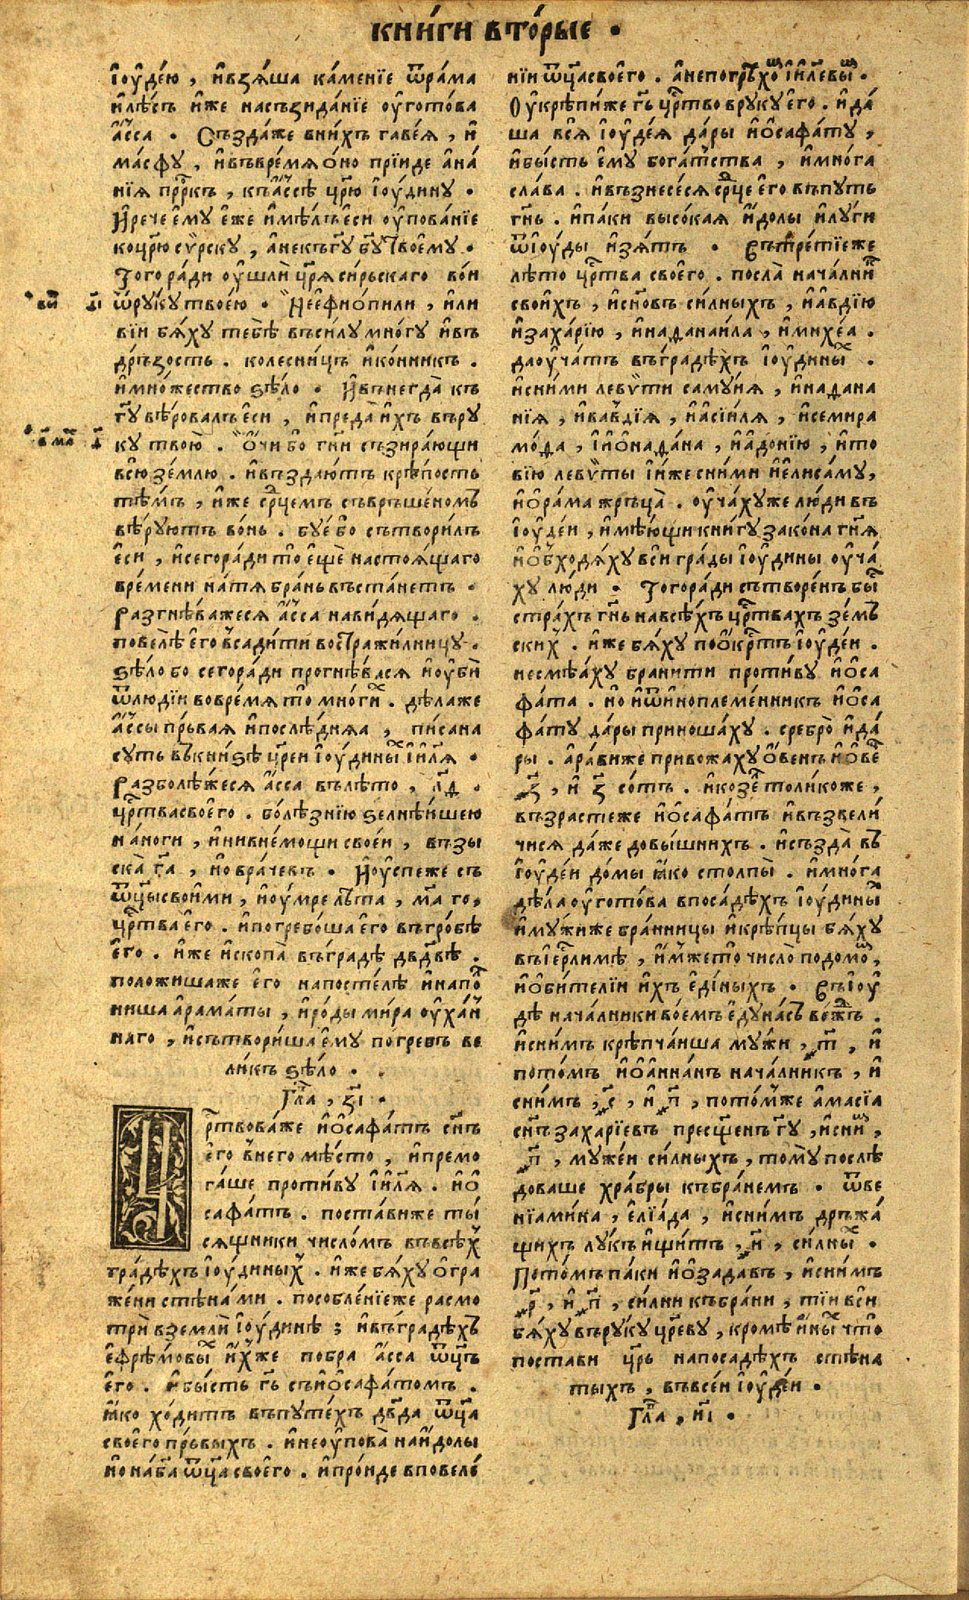 книги вторые ·
іоудею , ивзяша каменїе ѿрама
илѣсъ иже насъзиданїе оуготова
а҆сса · Създа́же внихъ гавея , и
масфу , ивъвремя оно прїиде ана
нїя пр҇ркъ , къассѣ цр҃ю іоудину ·
Ирече ему еже имѣлъ еси оупованїе
коцр҃ю сѵрску , анекъгу б҃гу твоему ·
Того ради оушли цр҃я сирьскаго вои
ѿруку твоею · Неефиопили , или
вїи бяху тебѣ въсилу многу ивъ
дръзость . колесницъ иконникъ .
имножество ѕѣло · Ивънегда къ
г҃у вѣровалъ еси , ипреда ихъ въру
ку твою . Очи бо гни съзирающи
всю землю . ивъздаютъ крѣпость
тѣмъ , иже ср҃цемъ съвръшеномъ
вѣруютъ вонь . буе бо сътворилъ
еси , исегоради то еще настоящаго
времени натя брань въстанетъ ·
Разгнѣважеся а҆сса навидящаго .
повелѣ его всадити востражилницу .
ѕѣло бо сегоради прогнѣвася иоуби
ѿлюдїи вовремя то многи҃х . дѣлаже
а҆ссы пръвая ипослѣдняа , писана
суть въкниѕѣ цр҃еи іоудины҃х іил҃я ·
Разболѣжеся асса вълѣто , л҃д .
цр҃твасвоего . болѣзнїю ѕелнѣишею
наноги , инивнемощи своеи , възы
ска г҃а , но врачевъ · Иоуспеже съ
ѿцы своими , иоумре лѣта , м҃а го ,
цр҃тва его . ипогребоша его въгробѣ
его . иже ископа въградѣ дв҃двѣ .
положишаже его напостелѣ инапо
ниша араматы , ироды мира оухан
наго , исътвориша ему погревъ ве
ликъ ѕѣло ·
Гл҃а , з҃і ·
Цр҇твоваже иосафатъ сн҃ъ
его внего мѣсто , ипремо
гаше противу іил҃я . ио
сафатъ . поставиже ты
сящники числомъ въвсѣх
градѣхъ іоудиных . иже бяху огра
жени стѣнами . пособленїеже расмо
три вземли іоудинѣ ; ивъградѣхъ
ефрѣмовы҃х ихже побра асса ѿц҃ъ
его . ибысть г҃ь съиосафатомъ .
яко ходитъ въпутехъ дв҃да ѿц҃а
своего пръвыхъ . инеоупова наидолы
но наб҃а ѿц҃а своего . ипроиде вповеле
нїи ѿц҃а своего . анепогръхо҃м іил҃евы҃м .
Оукрѣпиже г҃ь цр҃тво вруку его . ида
ша вся іоудея дары иосафату ,
ибысть ему богатства , имнога
слава . ивъзнесеся ср҃це его въпуть
г҃нь . ипаки высокая идолы илуги
ѿіоуды изятъ · Вътретїеже
лѣто цр҃тва своего . посла начални
своихъ , исн҃овъ силныхъ , иавдїю
изахарїю , инаданаила , имихеа .
даоучатъ въградѣхъ іоудины҃х .
исними левѵти самуия , инадана
нїя , ивавдїя , иасіиля , исемира
мода , іионадана , иадонїю , ито
вїю левѵты іиже сними иелисаму,
иорама жръца . оучахуже люди въ
іоудеи , имѣющи книгу закона г҃ня
иобходяху вси грады іоудины оуча
ху люди · Тогоради сътворенъ бы҃с
страхъ г҃нь навсѣхъ цр҃твахъ земъ
ских . иже бяху поокр҃тъ іоудеи .
несмѣаху бранити противу иоса
фата . но иѿиноплеменникъ иоса
фату дары приношаху . сребро ида
ры . аравиже привожаху овенъ иове
҂з҃ , и з҃ сотъ . икозе҃л толикоже ,
възрастеже иосафатъ ивъзвели
чися даже довышнихъ . исъзда въ
іоудеи домы яко столпы . имнога
дѣла оуготова впосадѣхъ іоудины҃х
имужиже бранницы икрѣпцы бяху
въіер҃лимѣ , имжето число подомо҃м ,
иобителїи ихъ единыхъ · Въіоу
дѣ началники воемъ едунасъ вождъ .
исним крѣпчаиша мужи , ҂т҃ , и
потомъ иоаннанъ началникъ , и
снимъ , ҂с҃ , и ҂п҃ , потомже амасїа
сн҃ъ захарїевъ пресщенъ г҃у , исни҃м ,
҂п҃ , мужеи силныхъ , тому послѣ
доваше храбры къбранемъ · ѿве
нїамика , елїада , иснимъ дръжа
щихъ лукъ ищитъ , ҂и҃ , силны҃х ·
Потомъ паки иозадавъ , иснимъ
҂р҃ , и ҂п҃ , силни къбрани , тїи вси
бяху въруку цр҃еву , кромѣ ины҃х что
постави цр҃ь напосадѣхъ стѣна
тыхъ , въвсеи іоудеи .
Гл҃а , и҃і ·